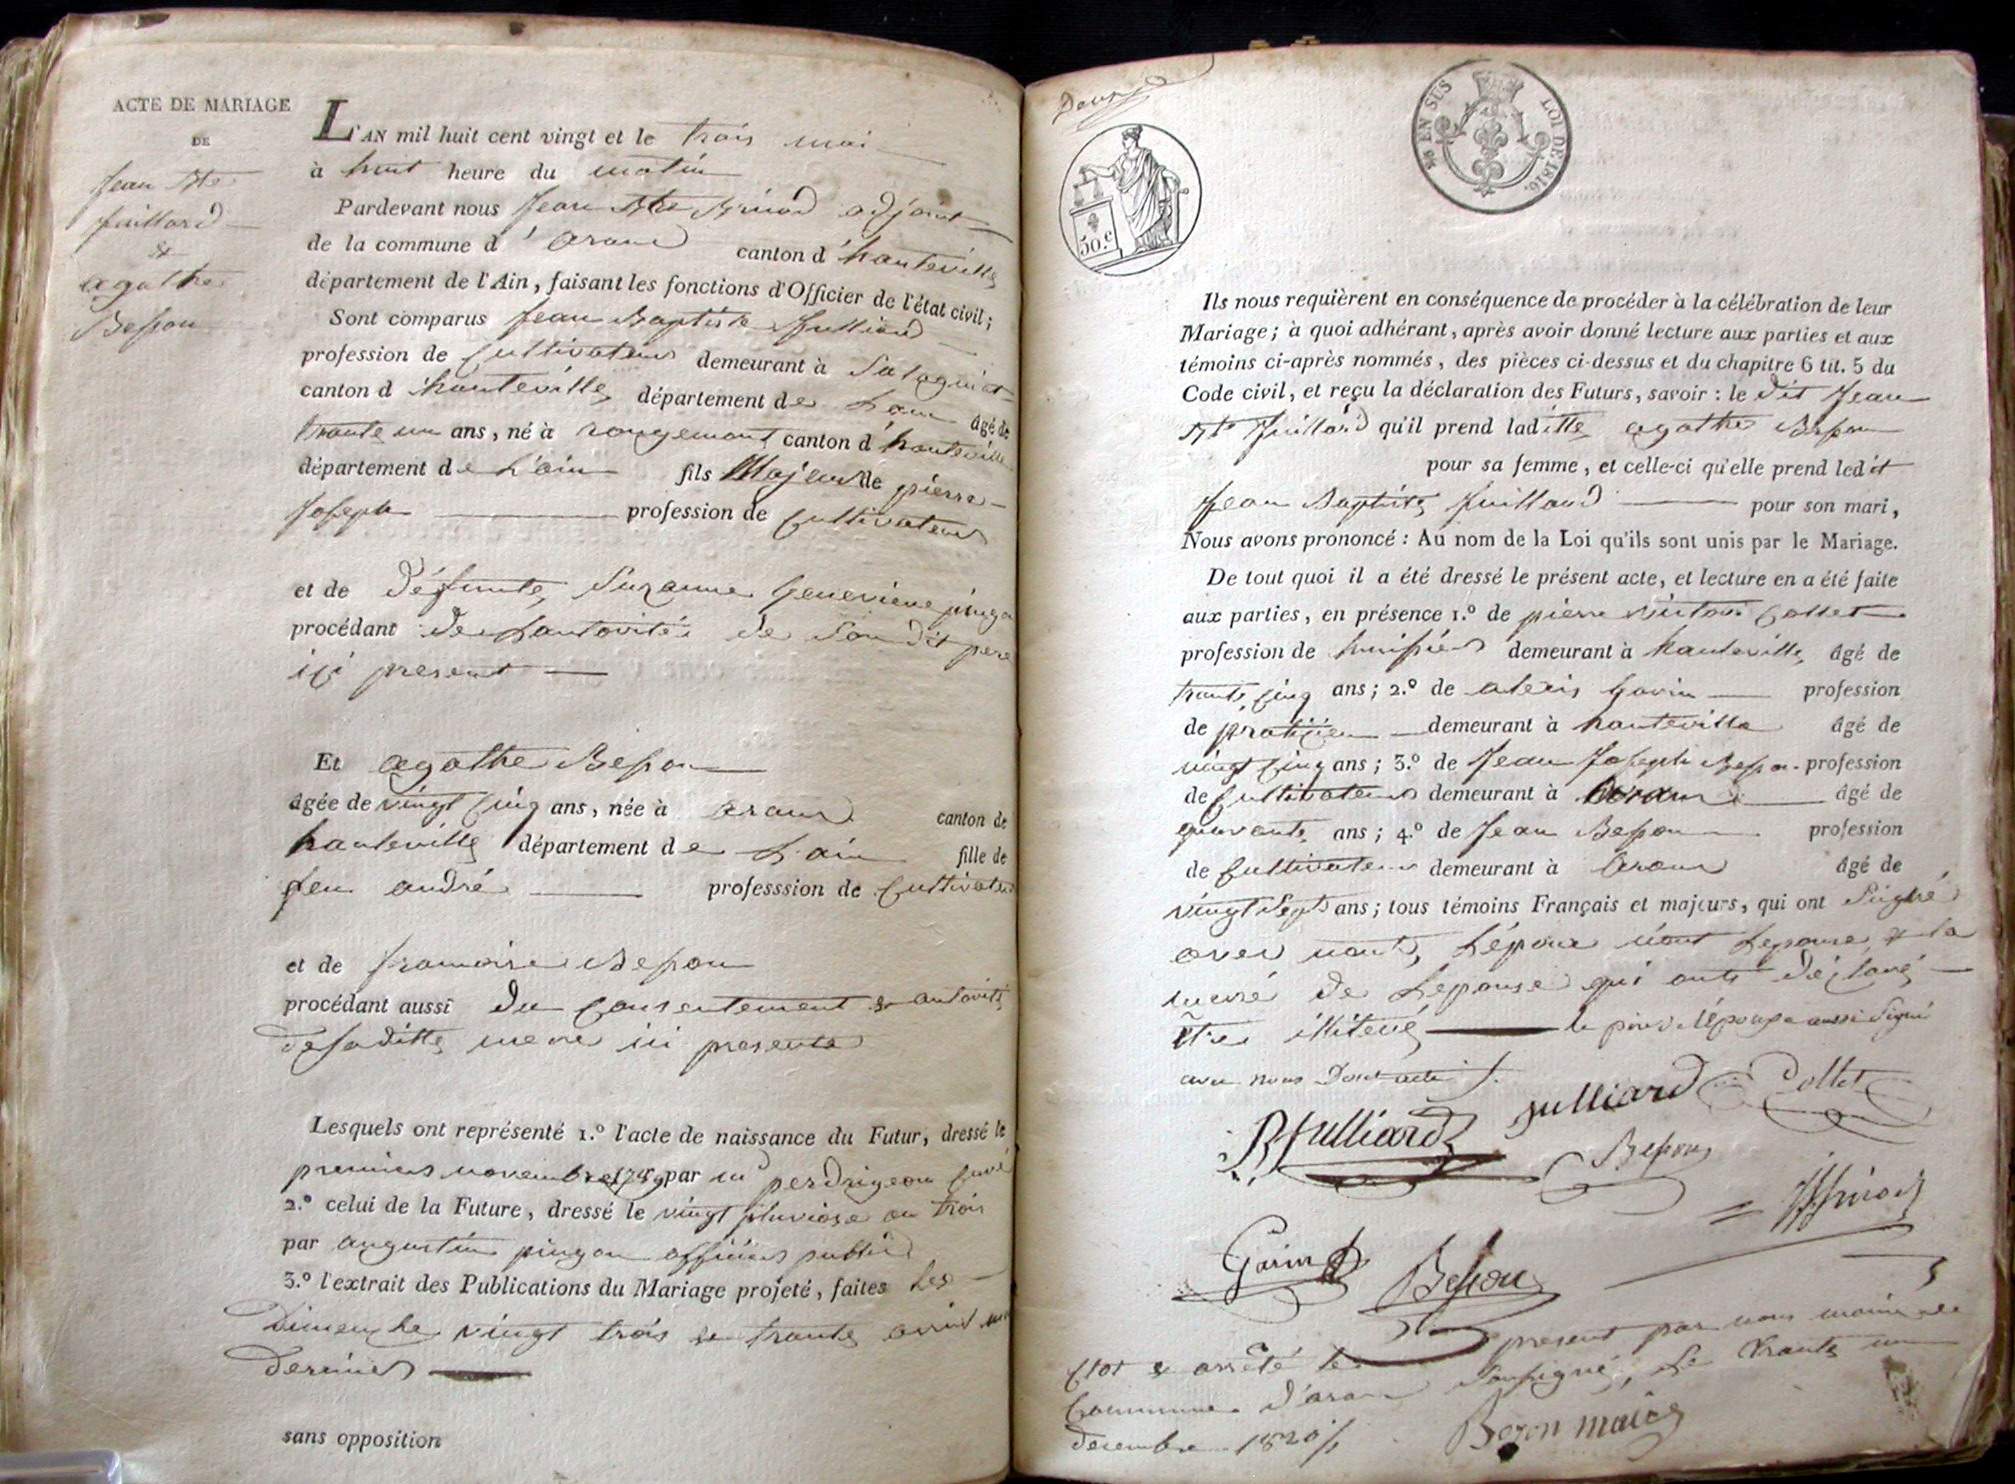 ACTE DE MARIAGE
DE
Jean Bte
Juillard
&
agathe
Besson
L'AN mil huit cent vingt et le trois mai
à huit heure du matin
Pardevant nous Jean Bte Brinod adjoint
de la commune d'aranc canton d'hauteville
département de l'Ain, faisant les fonctions d'Officier de l'état civil;
Sont comparus Jean Baptiste Julliard
profession de Cultivateur demeurant à
canton d'hauteville département de Lain âgé de
trante un ans, né à rougemont canton d'hauteville
département de L'ain fils Majeur de pierre
Joseph profession de Cultivateur
et de défunte Suzanne Genevieve pingon
procédant de Lautorité de Son dit pere
ici present
Et agathe Besson
âgée de vingt cinq ans, née à aranc canton de
hauteville département de Lain fille de
feu andré professsion de Cultivateur
et de francoise Besson
procédant aussi du Consentement & autorité
desaditte mere ici presente
Lesquels ont représenté 1.º l'acte de naissance du Futur, dressé le
premier novembre 1789 par mr perdrigeon Curé
2.º celui de la Future, dressé le vingt pluviose an trois
par augustin pingon officier public
3.º l'extrait des Publications du Mariage projeté, faites Les
Dimenche vingt trois & trante avril
dernier
sans opposition
50.c
EN SUS LOI DE 1816.
Ils nous requièrent en conséquence de procéder à la célébration de leur
Mariage; à quoi adhérant, après avoir donné lecture aux parties et aux
témoins ci-après nommés, des pièces ci-dessus et du chapitre 6 tit. 5 du
Code civil, et reçu la déclaration des Futurs, savoir: le dit Jean
Bte Juillard qu'il prend laditte agathe Besson
pour sa femme, et celle-ci qu'elle prend ledit
Jean Baptiste Juillard pour son mari,
Nous avons prononcé: Au nom de la Loi qu'ils sont unis par le Mariage.
De tout quoi il a été dressé le présent acte, et lecture en a été faite
aux parties, en présence 1.º de pierre victor Collet
profession de huissier demeurant à hauteville âgé de
trante cinq ans; 2.º de alexis Gorin profession
de praticien demeurant à hauteville âgé de
vingt cinq ans; 3.º de Jean Joseph Besson profession
de Cultivateur demeurant à aranc âgé de
quarante ans; 4.º de Jean Besson profession
de Cultivateur demeurant à aranc âgé de
vingt Sept ans; tous témoins Français et majeurs, qui ont Signé
avec nous, L'épouse & la
mere de Lepouse qui onts déclaré
être illiteré le père de l'époux a aussi signé
avec nous Dont acte
BJulliard Julliard Collet
Besson
Gorin Besson
Clot & arrêté le present par nous maire de
Commune d'aranc Soussigné, Le trante un
decembre 1820
Bezon maire